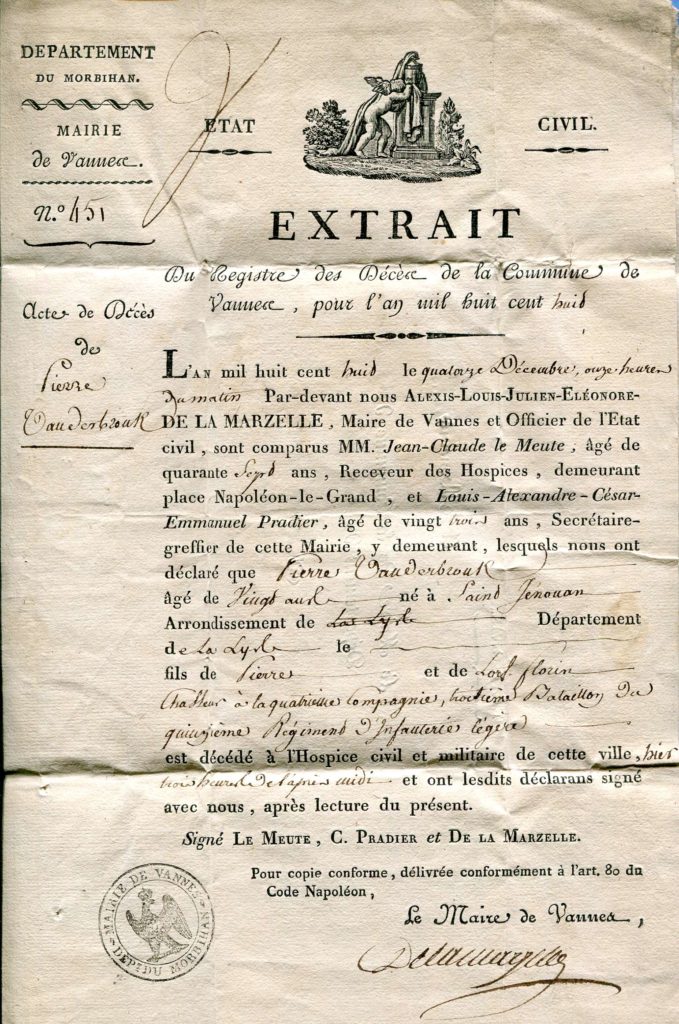 DEPARTEMENT
DU MORBIHAN.
MAIRIE
de Vannes.
N.º 451
ETAT CIVIL.
EXTRAIT
Du Registre des Décès de la Commune de
Vannes, pour l'an mil huit cent huid
Acte de Décès
de
Pierre
Vauderbrouk
L'AN mil huit cent huid le quatorze Décembre, onze heures
du matin Par-devant nous ALEXIS-LOUIS-JULIEN-ELÉONORE-
DE LA MARZELLE, Maire de Vannes et Officier de l'Etat
civil, sont comparus MM. Jean-Claude le Meute, âgé de
quarante Sept ans, Receveur des Hospices, demeurant
place Napoléon-le-Grand, et Louis-Alexandre-César-
Emmanuel Pradier, âgé de vingt trois ans, Secrétaire-
greffier de cette Mairie, y demeurant, lesquels nous ont
déclaré que Pierre Vauderbrouk
âgé de Vingt ans né à Saint Jénouan
Arrondissement de La Lyse Département
de La Lyse le
fils de Pierre et de florin
Chasseur à la quatrième Compagnie, troisième Bataillon du
quinzième Régiment d'Infanterie légère
est décédé à l'Hospice civil et militaire de cette ville, hier
trois heures de l'après midi et ont lesdits déclarans signé
avec nous, après lecture du présent.
Signé LE MEUTE, C. PRADIER et DE LA MARZELLE.
Pour copie conforme, délivrée conformément à l'art. 80 du
Code Napoléon,
Le Maire de Vannes,
Delamarzelle
MAIRIE DE VANNES
DEPT DU MORBIHAN